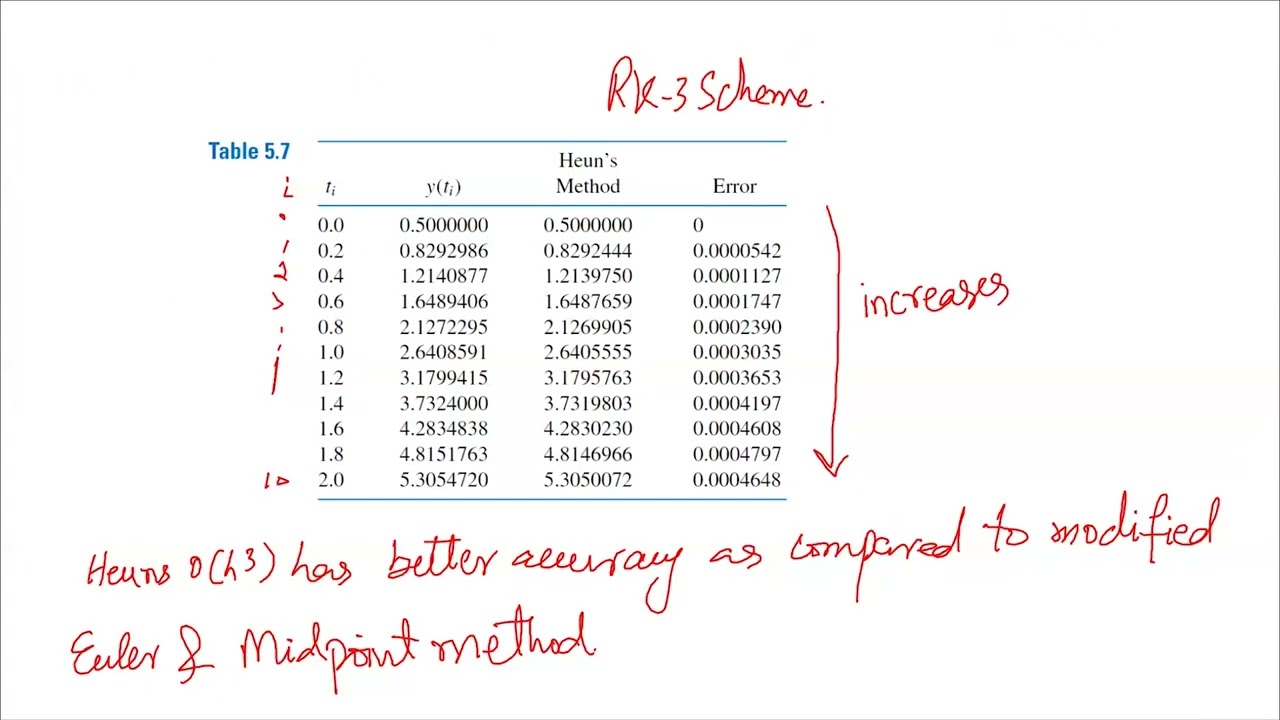 RK-3 Scheme.
Table 5.7
Heun's
i ti y(ti) Method Error
0.0 0.5000000 0.5000000 0
1 0.2 0.8292986 0.8292444 0.0000542
2 0.4 1.2140877 1.2139750 0.0001127
3 0.6 1.6489406 1.6487659 0.0001747
0.8 2.1272295 2.1269905 0.0002390
1.0 2.6408591 2.6405555 0.0003035
1.2 3.1799415 3.1795763 0.0003653
1.4 3.7324000 3.7319803 0.0004197
1.6 4.2834838 4.2830230 0.0004608
1.8 4.8151763 4.8146966 0.0004797
10 2.0 5.3054720 5.3050072 0.0004648
increases
Heuns O(h3) has better accuracy as compared to modified
Euler & Midpoint method.